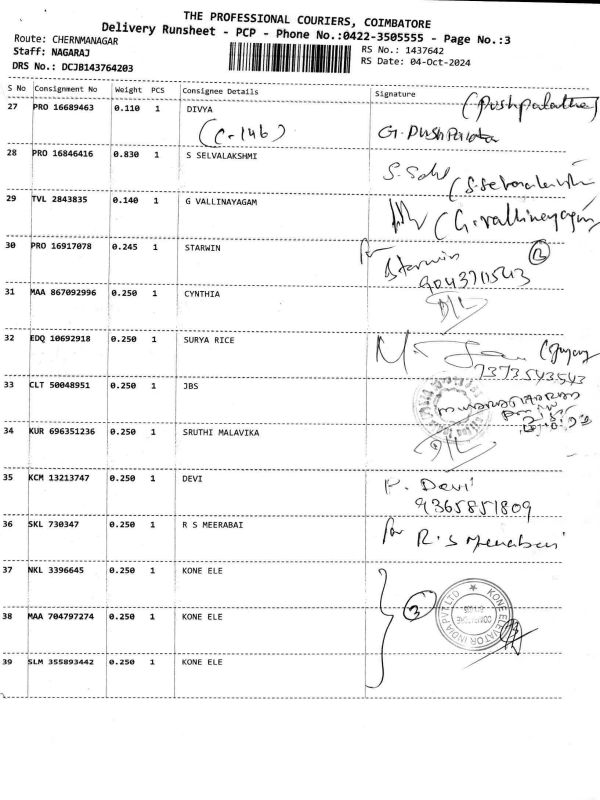 THE PROFESSIONAL COURIERS, COIMBATORE
Delivery Runsheet - PCP - Phone No.:0422-3505555 - Page No.:3
Route: CHERNMANAGAR
RS No.: 1437642
Staff: NAGARAJ
RS Date: 04-Oct-2024
DRS No.: DCJB143764203
S No Consignment No Weight PCS Consignee Details Signature
27 PRO 16689463 0.110 1 DIVYA
(C-146) G. Pushpalata
28 PRO 16846416 0.830 1 S SELVALAKSHMI
29 TVL 2843835 0.140 1 G VALLINAYAGAM
(G.vallinayagam
30 PRO 16917078 0.245 1 STARWIN for
Starwin
9043711543
31 MAA 867092996 0.250 1 CYNTHIA D/L
32 EDQ 10692918 0.250 1 SURYA RICE
7373543543
33 CLT 50048951 0.250 1 JBS
34 KUR 696351236 0.250 1 SRUTHI MALAVIKA D/L
35 KCM 13213747 0.250 1 DEVI Devi
9365851809
36 SKL 730347 0.250 1 R S MEERABAI for R.S Meerabai
37 NKL 3396645 0.250 1 KONE ELE
38 MAA 704797274 0.250 1 KONE ELE 3 KONE ELEVATOR INDIA PVT LTD
39 SLM 355893442 0.250 1 KONE ELE